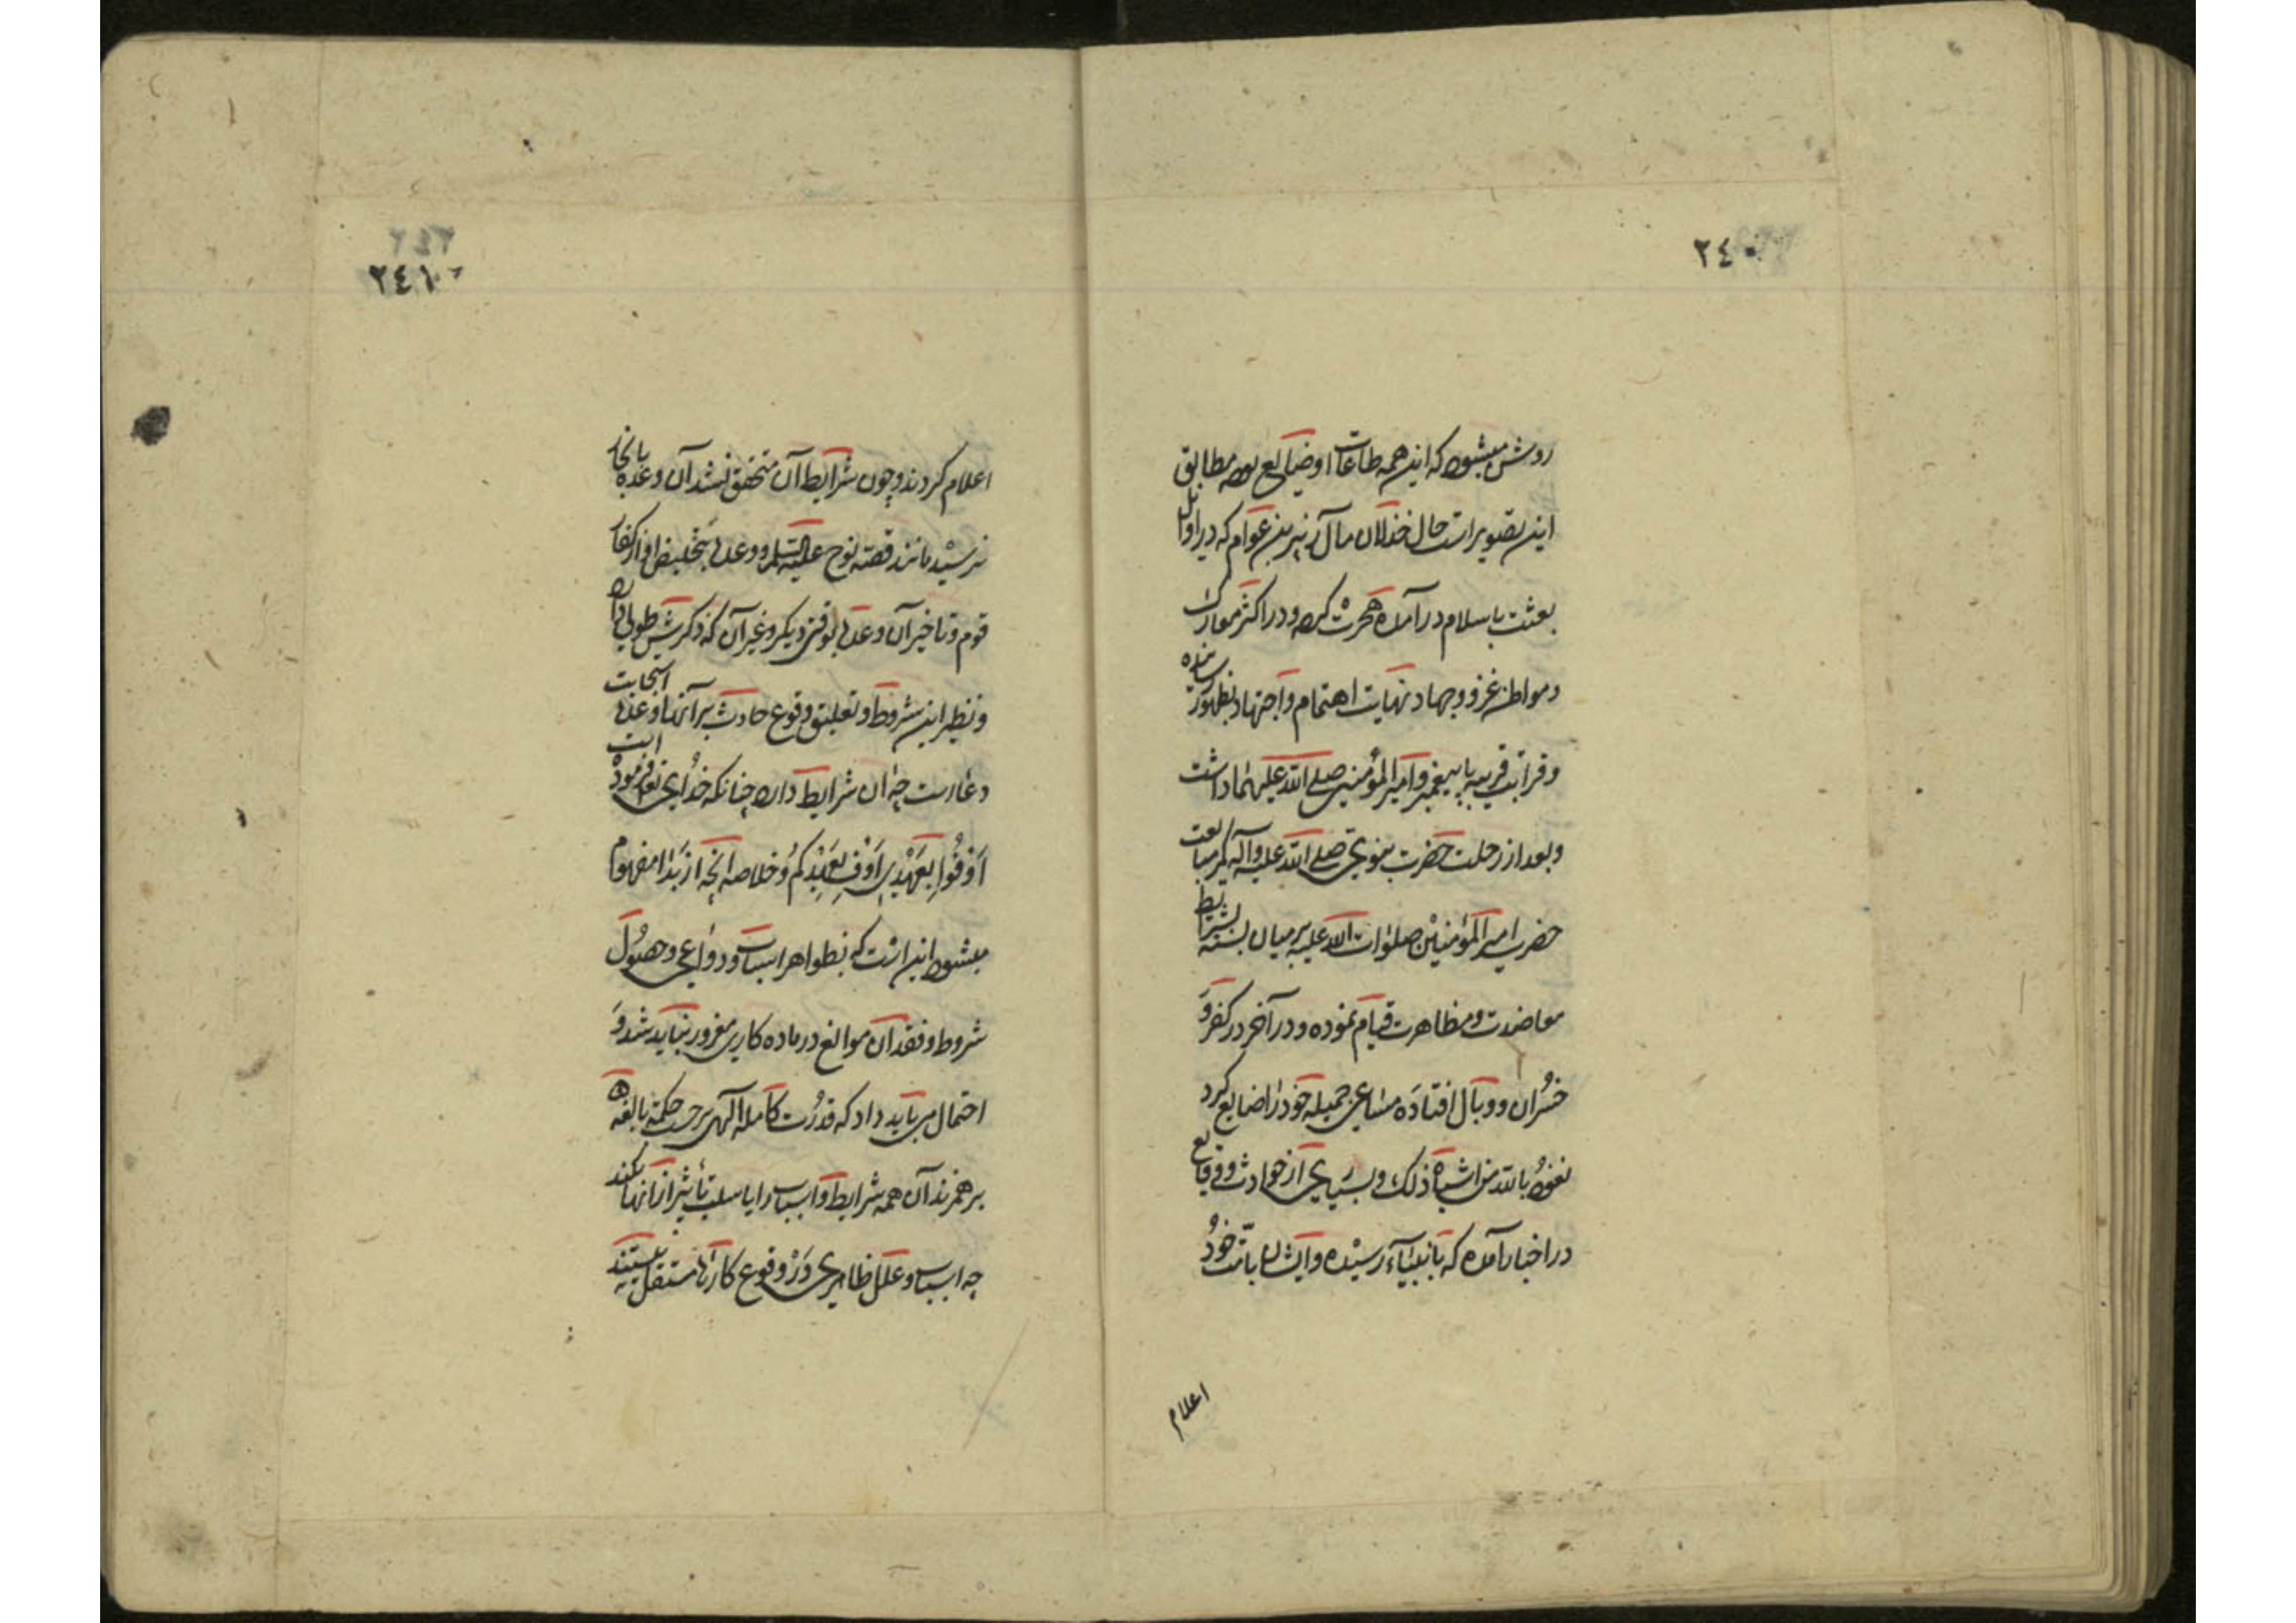 ٢٤٠
روشن میشود که این همه طاعات او ضایع بوده مطابق
این تصویر است حال خذلان مآل زبیر بن عوام که در اوایل
بعثت باسلام در آمده هجرت کرده و در اکثر معارک
ومواطن غزو وجهاد نهایت اهتمام واجتهاد بظهور رسانیده
وقرابت قریبه با پیغمبر وامیر المؤمنین صلی الله علیهما داشت
وبعد از رحلت حضرت نبوی صلی الله علیه وآله کمر مبایعت
حضرت امیر المؤمنین صلوات الله علیه بر میان بسته بشرایط
معاضدت ومظاهرت قیام نموده ودر آخر در کفر و
خسران ووبال افتاده مساعی جمیله خود را ضایع کرد
نعوذ بالله من اشباه ذلک وبسیاری از حوادث ووقایع
در اخبار آمده که بانبیاء رسیده وایشان بامت خود
اعلام
٢٤٢
٢٤١
اعلام کردند وچون شرایط آن متحقق نشد آن وعده بانجاز
نرسید مانند قصه نوح علیه السلم ووعده بتخلیص او از کفار
قوم وتاخیر آن وعده بوقتی دیگر وغیر آن که ذکرش طولی دارد
ونظیر این شروط وتعلیق وقوع حادث بر آنها وعده استجابت
دعا است چه آن شرایط دارد چنانکه خدای تع فرموده است
اَوْفُوا بِعَهْدِی اُوفِ بِعَهْدِکُم وخلاصه آنچه از بَدا مفهوم
میشود این است که بظواهر اسباب ودواعی وحصول
شروط وفقدان موانع در ماده کاری مغرور نباید شد و
احتمال می باید داد که قدرت کامله الهی بر حسب حکمة بالغه
بر همزند آن همه شرایط واسباب را یا سلب تأثیر از آنها کند
چه اسباب وعلل ظاهری در وقوع کارها مستقل نیستند